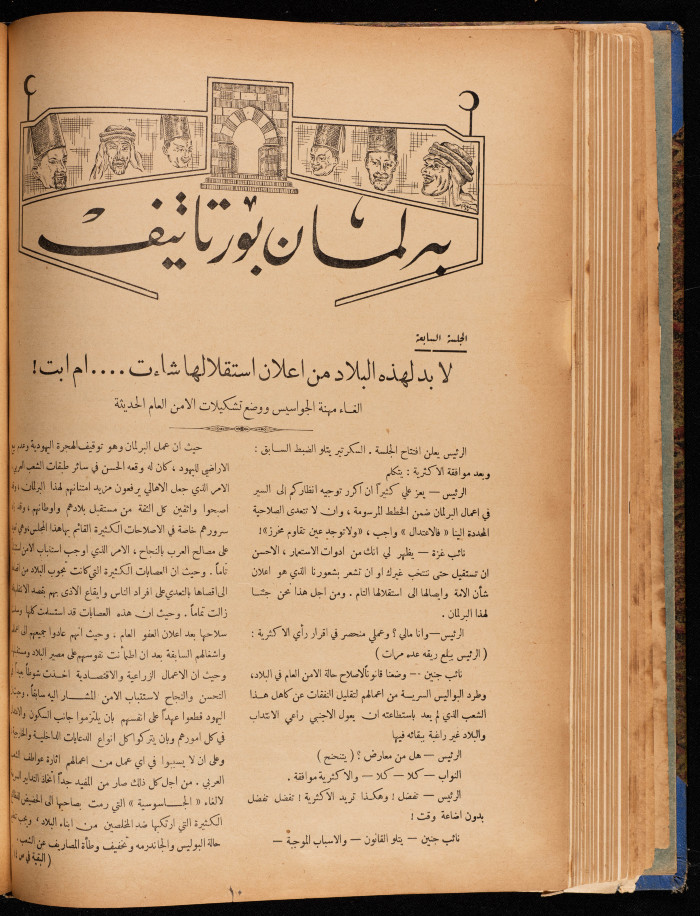 برلمان بورتاتيف
الجلسة السابعة
لا بد لهذه البلاد من اعلان استقلالها شاءت .... ام ابت !
الغاء مهنة الجواسيس ووضع تشكيلات الامن العام الحديثة
الرئيس يعلن افتتاح الجلسة . السكرتير يتلو الضبط السابق :
وبعد موافقة الاكثرية : يتكلم
الرئيس — يعز علي كثيراً ان اكرر توجيه انظاركم الى السير
في اعمال البرلمان ضمن الخطط المرسومة ، وان لا تتعدى الصلاحية
المحددة الينا « فالاعتدال » واجب ، «ولا توجد عين تقاوم مخرز»!
نائب غزة — يظهر لي انك من ادوات الاستعمار ، الاحسن
ان تستقيل حتى ننتخب غيرك او ان تشعر بشعورنا الذي هو اعلان
شأن الامة وايصالها الى استقلالها التام . ومن اجل هذا نحن جئنا
لهذا البرلمان .
الرئيس — وانا مالي ؟ وعملي منحصر في اقرار رأي الاكثرية :
( الرئيس يبلع ريقه عده مرات )
نائب جنين — وضعنا قانوناً لاصلاح حالة الامن العام في البلاد،
وطرد البواليس السرية من اعمالهم لتقليل النفقات عن كاهل هذا
الشعب الذي لم يعد باستطاعته ان يعول الاجنبي راعي الانتداب
والبلاد غير راغبة ببقائه فيها
الرئيس — هل من معارض ؟ ( يتنحنح )
النواب — كلا — كلا — والاكثرية موافقة .
الرئيس — تفضل ! وهكذا تريد الاكثرية ! تفضل تفضل
بدون اضاعة وقت !
نائب جنين — يتلو القانون — والاسباب الموجبة —
حيث ان عمل البرلمان وهو توقيف الهجرة اليهودية وعدم بيع
الاراضي لليهود ، كان له وقعه الحسن في سائر طبقات الشعب العربي
الامر الذي جعل الاهالي يرفعون مزيد امتنانهم لهذا البرلمان ،
اصبحوا واثقين كل الثقة من مستقبل بلادهم واوطانهم ، وقد
سرورهم خاصة في الاصلاحات الكثيرة القائم بها هذا المجلس، وهي
على مصالح العرب بالنجاح ، الامر الذي اوجب استتباب الامن
تماماً . وحيث ان العصابات الكثيرة التي كانت تجوب البلاد من
الى اقصاها بالتعدي على افراد الناس وايقاع الاذى بهم بقصد
زالت تماماً . وحيث ان هذه العصابات قد استسلمت كلها
سلاحها بعد اعلان العفو العام ، وحيث انهم عادوا جميعهم الى
واشغالهم السابقة بعد ان اطمأنت نفوسهم على مصير البلاد
وحيث ان الاعمال الزراعية والاقتصادية اخذت شوطاً
التحسن والنجاح لاستتباب الامن المشار اليه سابقاً .
اليهود قطعوا عهداً على انفسهم بان يلتزموا جانب السكون
في كل امورهم وبان يتركوا كل انواع الدعايات الداخلية
وعلى ان لا يسببوا في اي عمل من اعمالهم اثارة عواطف الشعب
العربي . من اجل كل ذلك صار من المفيد جداً اتخاذ التدابير
لالغاء « الجاسوسية » التي رمت بصاحبها الى الحضيض
الكثيرة التي ارتكبها ضد المخلصين من ابناء البلاد ،
حالة البوليس والجاندرمه وتخفيف وطأة المصاريف عن الشعب
( البقية في ص
١٠